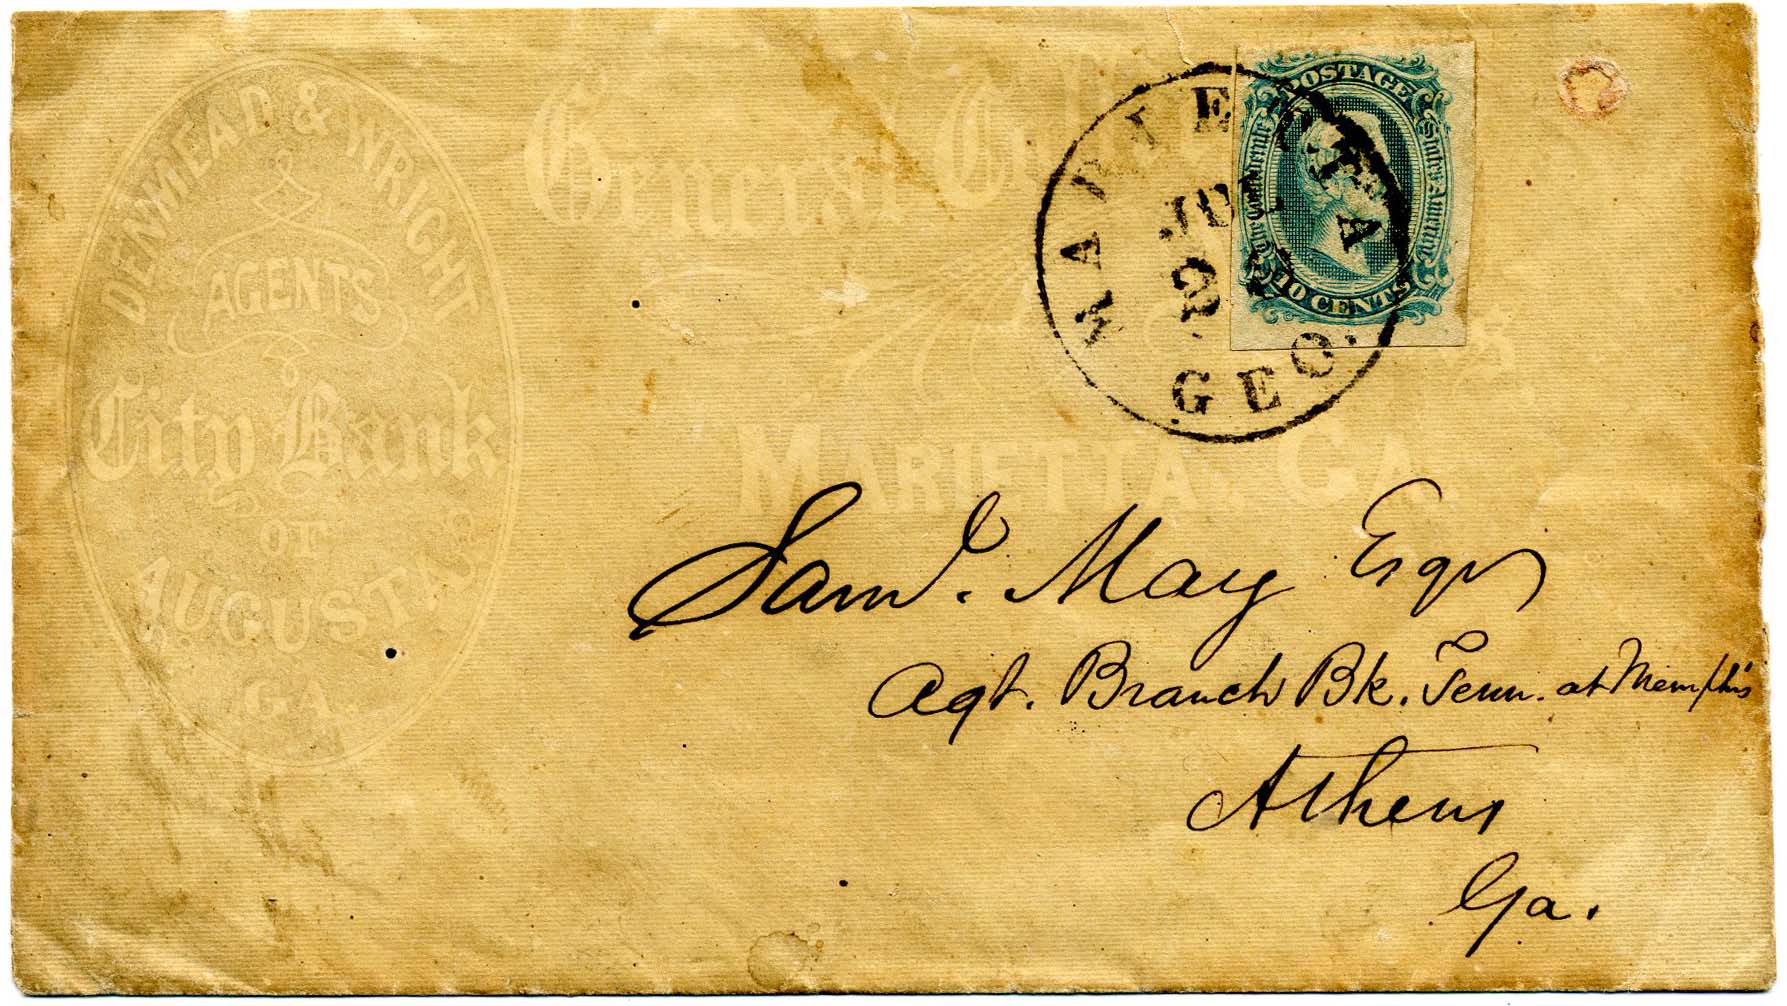 DENMEAD & WRIGHT
AGENTS
City Bank
OF
AUGUSTA
GA.
General
MARIETTA, GA.
MARIETTA
GEO.
2
POSTAGE
The Confederate States of America
10 CENTS
Saml. May Esqr
Agt. Branch Bk. Tenn. at Memphis
Athens
Ga.